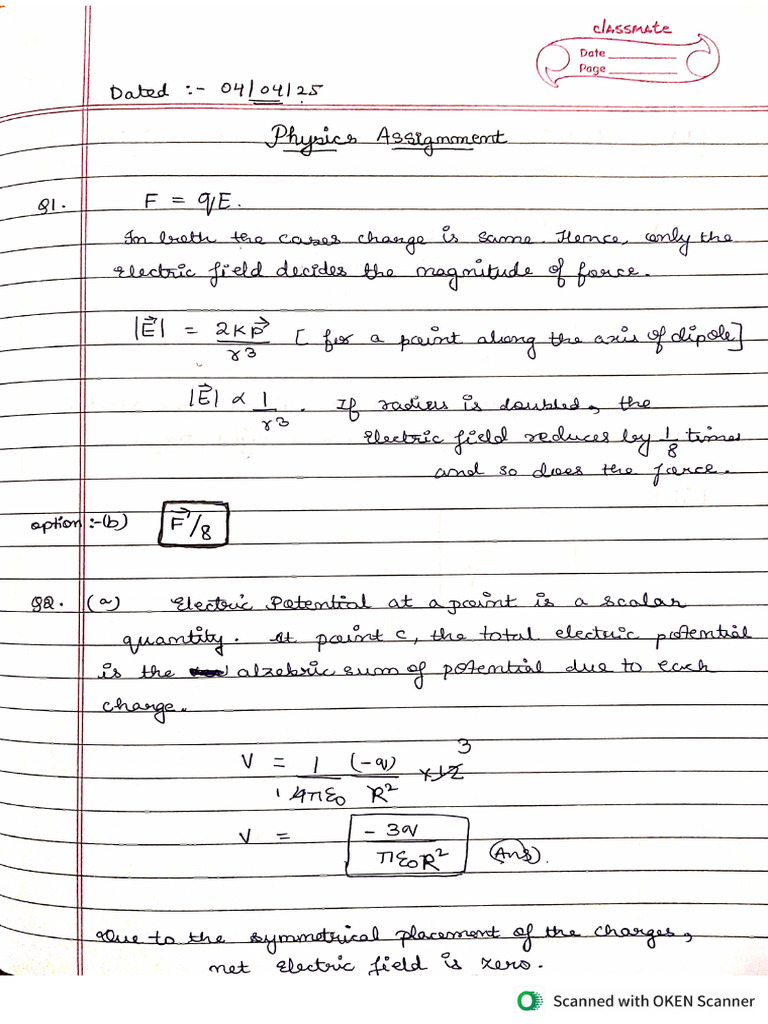 classmate
Date
Page
Dated :- 04/04/25
Physics Assignment
Q1. F = qE.
In both the cases charge is same. Hence, only the
electric field decides the magnitude of force.
|E⃗| = 2KP⃗/r3 [for a point along the axis of dipole]
|E⃗| ∝ 1/r3 . If radius is doubled, the
electric field reduces by 1/8 times
and so does the force.
option :-(b) F⃗/8
Q2. (a) Electric Potential at a point is a scalar
quantity. At point C, the total electric potential
is the algebric sum of potential due to each
charge.
V = 1/4πε0 (-q)/R2 ×12 3
V = -3q/πε0R2 (Ans).
Due to the symmetrical placement of the charges,
net electric field is zero.
Scanned with OKEN Scanner